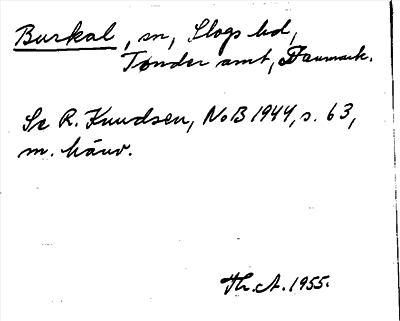 Burkal, sn, Slogs hd,
Tønder amt, Danmark.
Se R. Knudsen, NoB 1944, s. 63,
m. hänv.
Th. A. 1955.